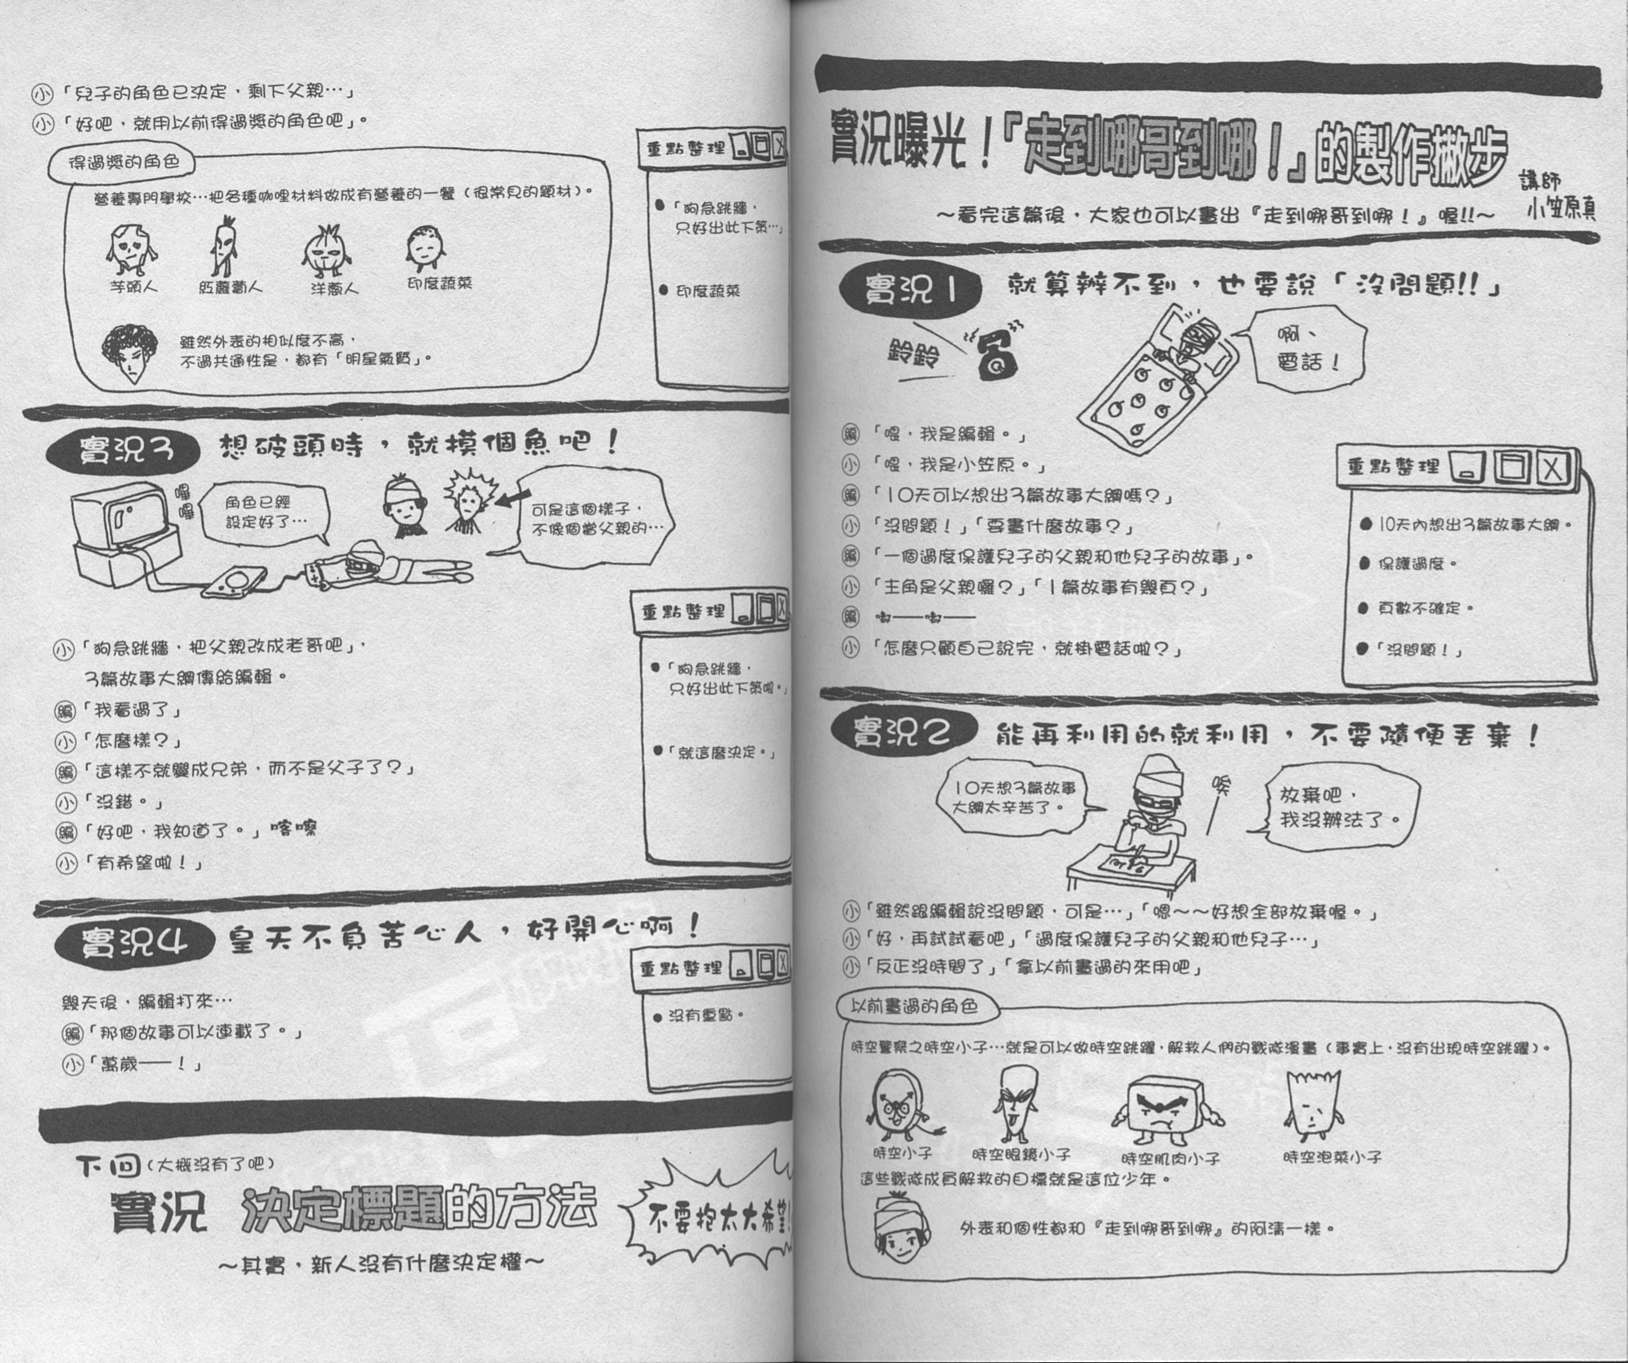 實況曝光！「走到哪哥到哪！」的製作撇步
講師
小笠原真
～看完這篇後，大家也可以畫出『走到哪哥到哪！』喔!!～
實況1 就算辦不到，也要說「沒問題!!」
鈴鈴
啊、
電話！
編「喂，我是編輯。」
小「喂，我是小笠原。」
編「10天可以想出3篇故事大綱嗎？」
小「沒問題！」「要畫什麼故事？」
編「一個過度保護兒子的父親和他兒子的故事」。
小「主角是父親囉？」「1篇故事有幾頁？」
編 嘟——嘟——
小「怎麼只顧自己說完，就掛電話啦？」
重點整理
●10天內想出3篇故事大綱。
●保護過度。
●頁數不確定。
●「沒問題！」
實況2 能再利用的就利用，不要隨便丟棄！
10天想3篇故事
大綱太辛苦了。
唉
放棄吧，
我沒辦法了。
小「雖然跟編輯說沒問題，可是…」「嗯～～好想全部放棄喔。」
小「好，再試試看吧」「過度保護兒子的父親和他兒子…」
小「反正沒時間了」「拿以前畫過的來用吧」
以前畫過的角色
時空警察之時空小子…就是可以做時空跳躍，解救人們的戰隊漫畫（事實上，沒有出現時空跳躍）。
時空小子
時空眼鏡小子
時空肌肉小子
時空泡菜小子
這些戰隊成員解救的目標就是這位少年。
外表和個性都和『走到哪哥到哪』的阿清一樣。
小「兒子的角色已決定，剩下父親…」
小「好吧，就用以前得過獎的角色吧」。
得過獎的角色
營養專門學校…把各種咖哩材料做成有營養的一餐（很常見的題材）。
芋頭人
紅蘿蔔人
洋蔥人
印度蔬菜
雖然外表的相似度不高，
不過共通性是，都有「明星氣質」。
重點整理
●「狗急跳牆，
只好出此下策…」
●印度蔬菜
實況3 想破頭時，就摸個魚吧！
嗶
嗶
角色已經
設定好了…
可是這個樣子，
不像個當父親的…
小「狗急跳牆，把父親改成老哥吧」，
3篇故事大綱傳給編輯。
編「我看過了」
小「怎麼樣？」
編「這樣不就變成兄弟，而不是父子了？」
小「沒錯。」
編「好吧，我知道了。」喀嚓
小「有希望啦！」
重點整理
●「狗急跳牆，
只好出此下策吧。」
●「就這麼決定。」
實況4 皇天不負苦心人，好開心啊！
幾天後，編輯打來…
編「那個故事可以連載了。」
小「萬歲——！」
重點整理
●沒有重點。
下回（大概沒有了吧）
實況 決定標題的方法
～其實，新人沒有什麼決定權～
不要抱太大希望！